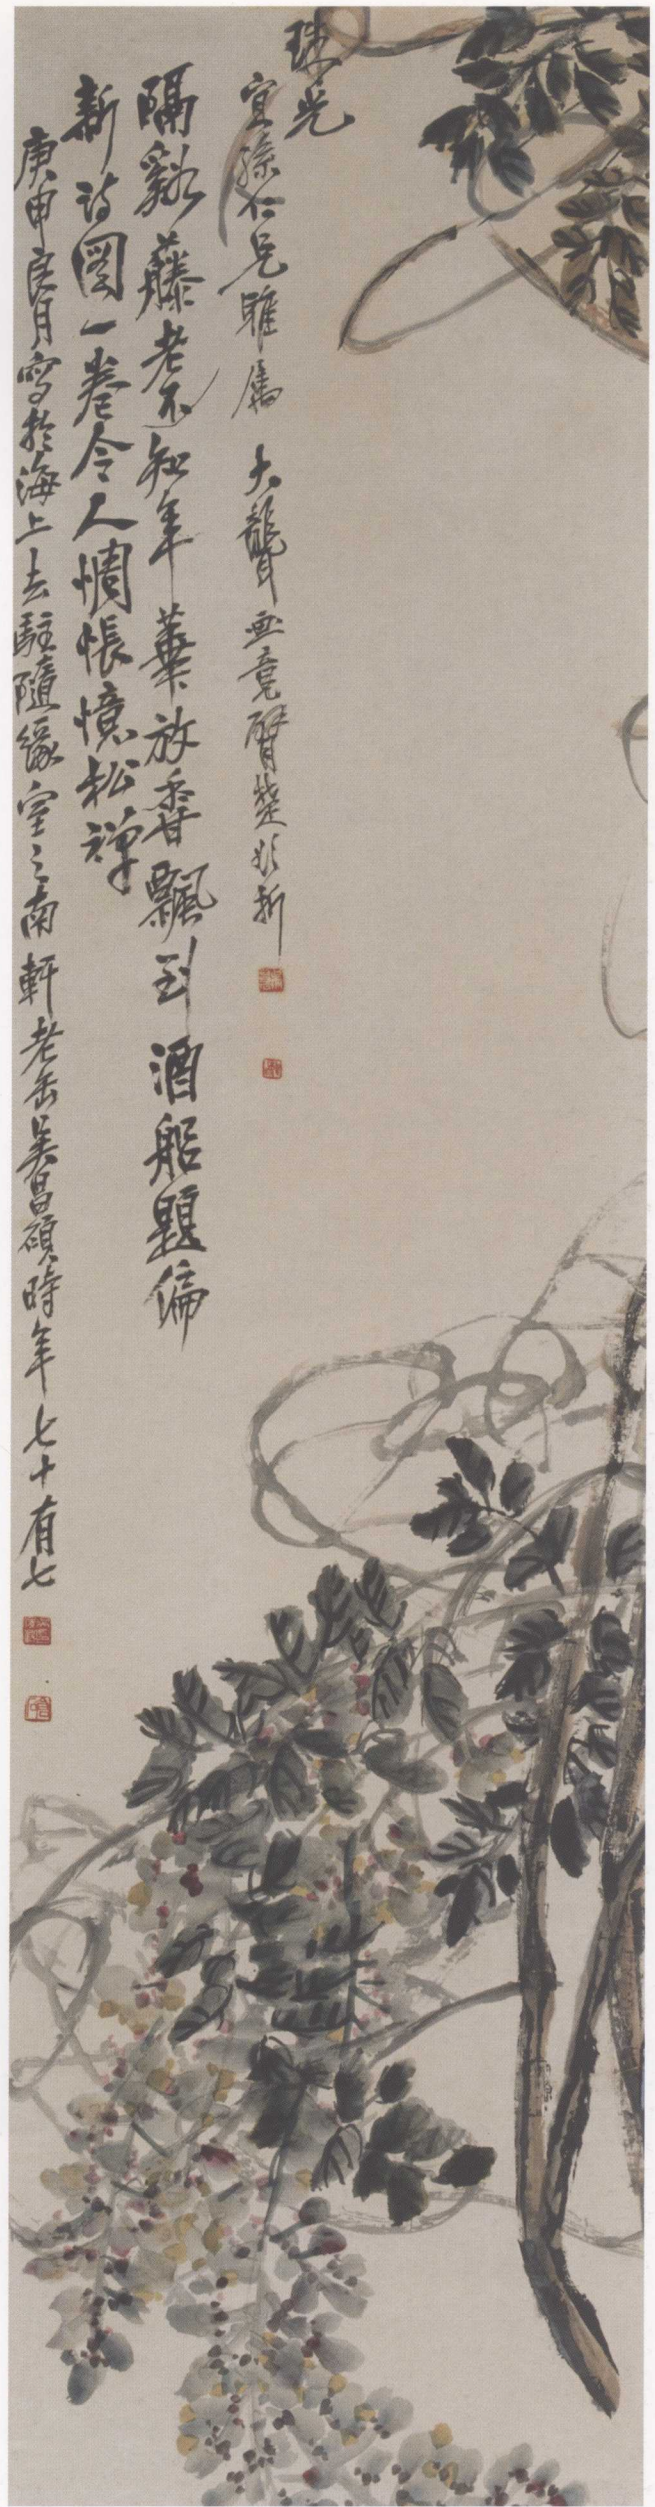 珠光
宜孫仁兄雅屬 大聾畫竟臂楚欲折
隔谿藤老不知年華放香飄到酒船題偏
新詩圖一卷令人惆悵憶松禪
庚申良月寫於海上去駐隨緣室之南軒老缶吳昌碩時年七十有七